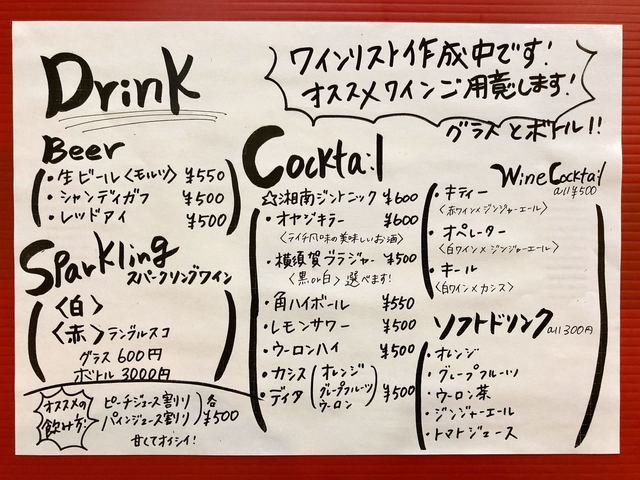 Drink
ワインリスト作成中です!
オススメワインご用意します!
グラスとボトル!!
Beer
・生ビール〈モルツ〉 ¥550
・シャンディガフ ¥500
・レッドアイ ¥500
Sparkling
スパークリングワイン
〈白〉
〈赤〉ランブルスコ
グラス 600円
ボトル 3000円
オススメの飲け方!
ピーチジュース割り
パインジュース割り
各¥500
甘くてオイシイ!
Cocktail
☆湘南ジントニック ¥600
・オヤジキラー ¥600
〈ライチ風味の美味しいお酒〉
・横須賀ブラジャー ¥500
〈黒or白〉選べます!
・角ハイボール ¥550
・レモンサワー ¥500
・ウーロンハイ ¥500
・カシス
・ディタ
オレンジ
グレープフルーツ
ウーロン
¥500
Wine Cocktail
all ¥500
・キティー
〈赤ワイン×ジンジャーエール〉
・オペレーター
〈白ワイン×ジンジャーエール〉
・キール
〈白ワイン×カシス〉
ソフトドリンク
all 300円
・オレンジ
・グレープフルーツ
・ウーロン茶
・ジンジャーエール
・トマトジュース